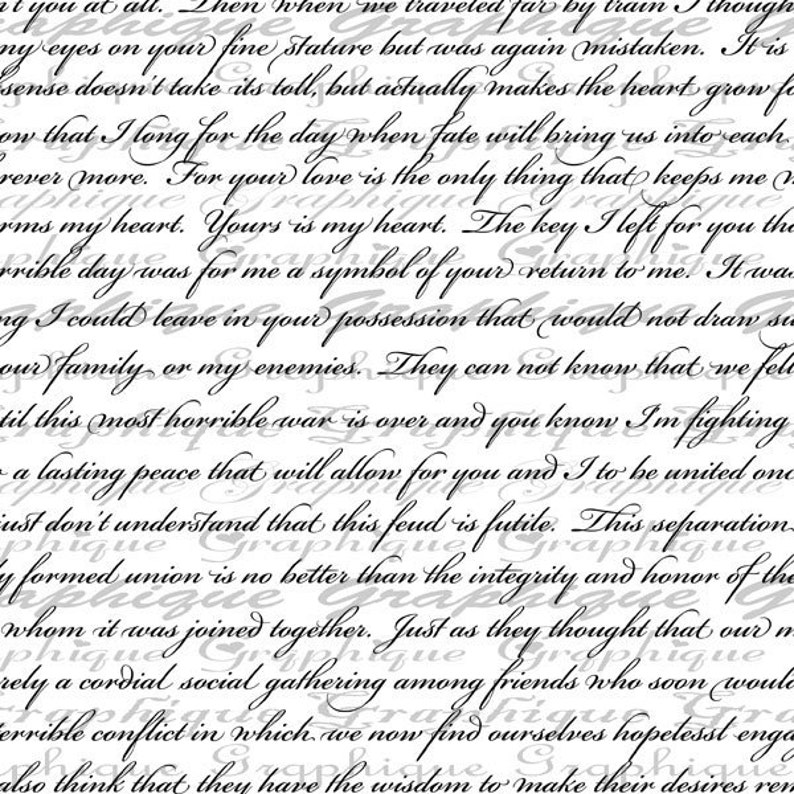 n't you at all. Then when we traveled far by train I though
my eyes on your fine stature but was again mistaken. It is
sense doesn't take its toll, but actually makes the heart grow fo
ow that I long for the day when fate will bring us into each
rever more. For your love is the only thing that keeps me
rms my heart. Yours is my heart. The key I left for you tha
rrible day was for me a symbol of your return to me. It was
ng I could leave in your possession that would not draw su
our family or my enemies. They can not know that we fell
til this most horrible war is over and you know I'm fighting
a lasting peace that will allow for you and I to be united onc
just don't understand that this feud is futile. This separation
ly formed union is no better than the integrity and honor of the
whom it was joined together. Just as they thought that our m
rely a cordial social gathering among friends who soon would
terrible conflict in which we now find ourselves hopelesst enga
also think that they have the wisdom to make their desires rem
Graphique